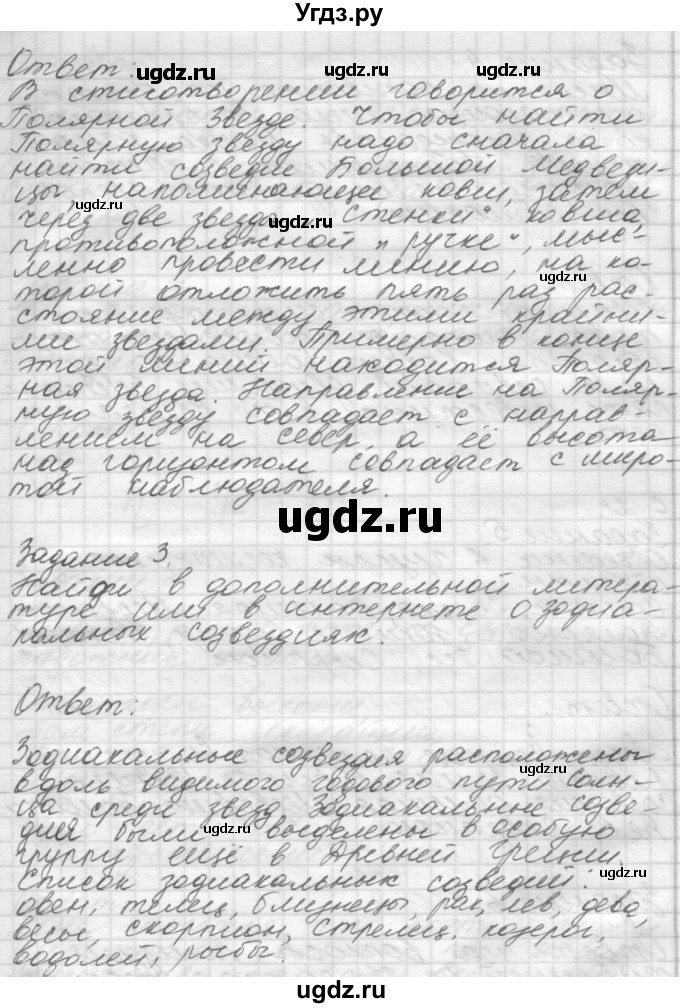 Угдз.ру
Ответ:
В стисотворении говорится о
Полярной Звезде. Чтобы найти
Полярную звезду надо сначала
найти созведие Большой Медведи-
цы, напоминающее ковш, затем
через две звезда „Стенки" ковша,
противоположной „ручке", мыс-
ленно провести линию, на ко-
торой отложить пять раз рас-
стояние между этими крайни-
ми звездами. Примерно в конце
этой линий находится Поляр-
ная звезда. Направление на Поляр-
ную звезду совпадает с направ-
лением на север, а её высота
над горизонтом совпадает с широ-
той наблюдателя.
ugdz.ru
Задание 3.
Найди в дополнительной литера-
туре или в интернете о зодиа-
ральных созвездиях.
Ответ:
Зодиакальные созвездия расположены
вдоль видимого годового пути Солн-
ца среди звезд. Зодиакальные созве-
дия были выделены в особую
группу ещё в Древней Греции.
Список зодиакальных созведий:
овен, телец, близнецы, рак, лев, дева,
весы, скорпион, стрелец, козерог,
водолей, рыбы.
ugdz.ru